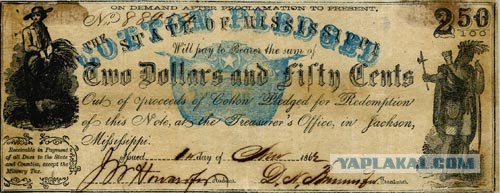 ON DEMAND AFTER PROCLAMATION TO PRESENT,
THE STATE OF MISSISSIPPI
COTTON PLEDGED
250
100
Will pay to Bearer the sum of
Two Dollars and Fifty Cents
Out of proceeds of Cotton Pledged for Redemption
of this Note, at the Treasurer's Office, in Jackson,
Mississippi.
Receivable in Payment
of all Dues to the State
and Counties, except the
Military Tax.
Issued day of 1862
YAPLAKAL.COM